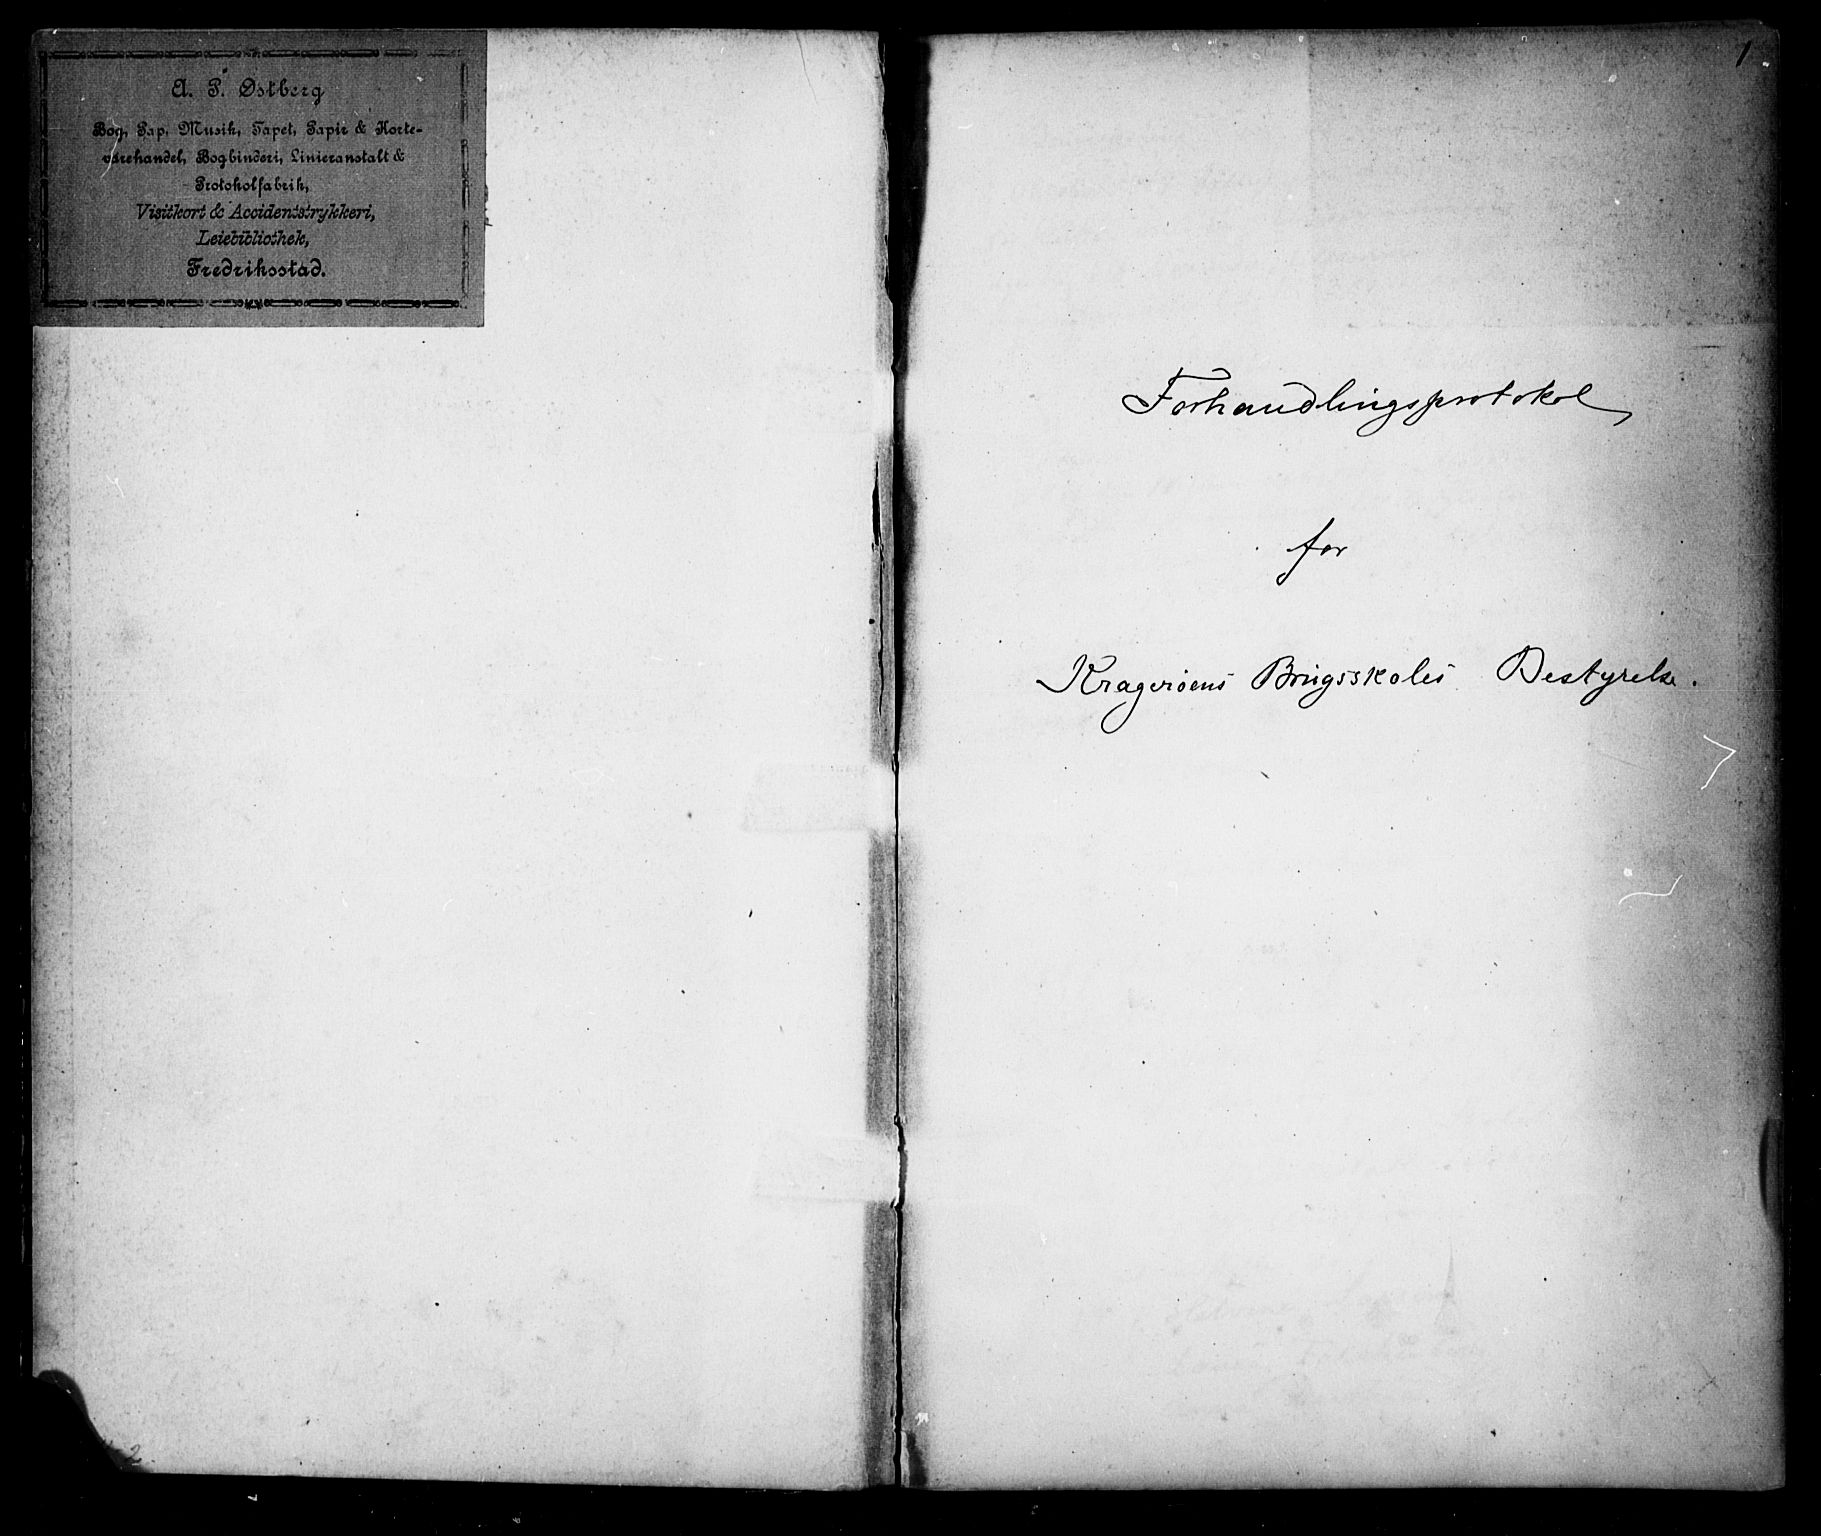 A. P. Østberg
Bog, Pap, Musik, Tapet, Papir & Korte-
varehandel, Bogbinderi, Linieranstalt &
Protokolfabrik,
Visitkort & Accidentstrykkeri,
Leiebibliothek,
Fredriksstad.
1
Forhandlingsprotokol
for
Kragerøens Brugsskoles Bestyrelse.
2